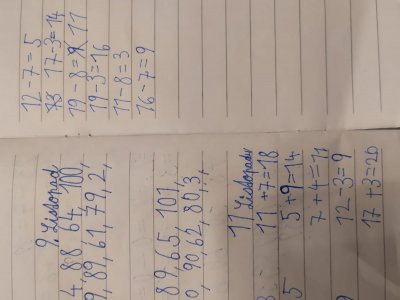 9. Listopad
4, 88, 64, 100,
9, 89, 61, 79, 2,
89, 65, 101,
0, 90, 62, 80, 3,
11 Listopadu
11 + 7 = 18
5 + 9 = 14
7 + 4 = 11
12 - 3 = 9
17 + 3 = 20
12 - 7 = 5
17 - 3 = 14
19 - 8 = 11
19 - 3 = 16
11 - 8 = 3
16 - 7 = 9